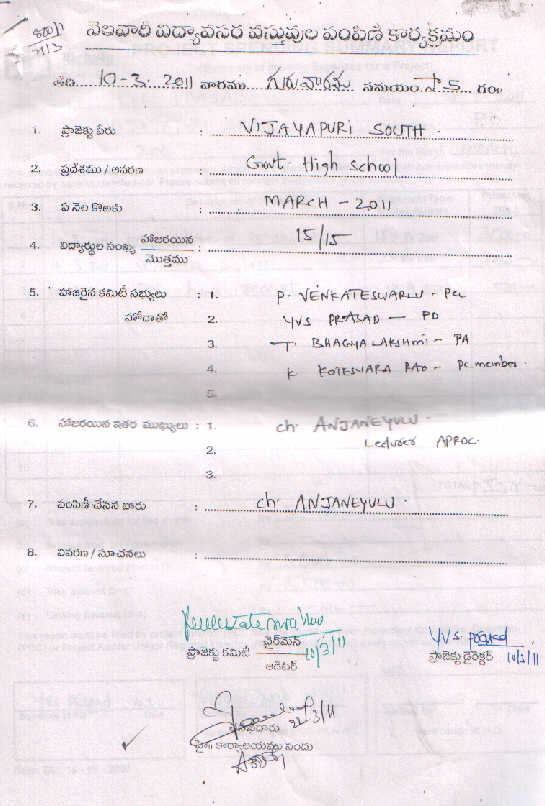 నెలవారీ విద్యావసర వస్తువుల పంపిణీ కార్యక్రమం
తేది 10-3-2011 వారము గురువారము సమయం సా.5 గం
1. ప్రాజెక్టు పేరు : VIJAYAPURI SOUTH.
2. ప్రదేశము / ఆవరణ : Govt. High school
3. ఏ నెల కొఱకు : MARCH - 2011
4. విద్యార్థుల సంఖ్య హాజరయిన : 15/15
మొత్తము
5. హాజరైన కమిటీ సభ్యులు : 1. P. VENKATESWARLU - PCC
హోదాతో 2. YVS PRASAD — PD
3. T. BHAGYA LAKSHMI - PA
4. K KOTESWARA RAO - PC member.
5.
6. హాజరయిన ఇతర ముఖ్యులు : 1. ch. ANJANEYULU.
Lecturer APRDC.
2.
3.
7. పంపిణీ చేసిన వారు : ch. ANJANEYULU.
8. వివరణ / సూచనలు :
ప్రాజెక్టు కమిటీ ఛైర్‌మెన్ 10/3/11
ఆడిటర్
YVS Prasad
ప్రాజెక్టు డైరెక్టర్ 10/3/11
22/3/11